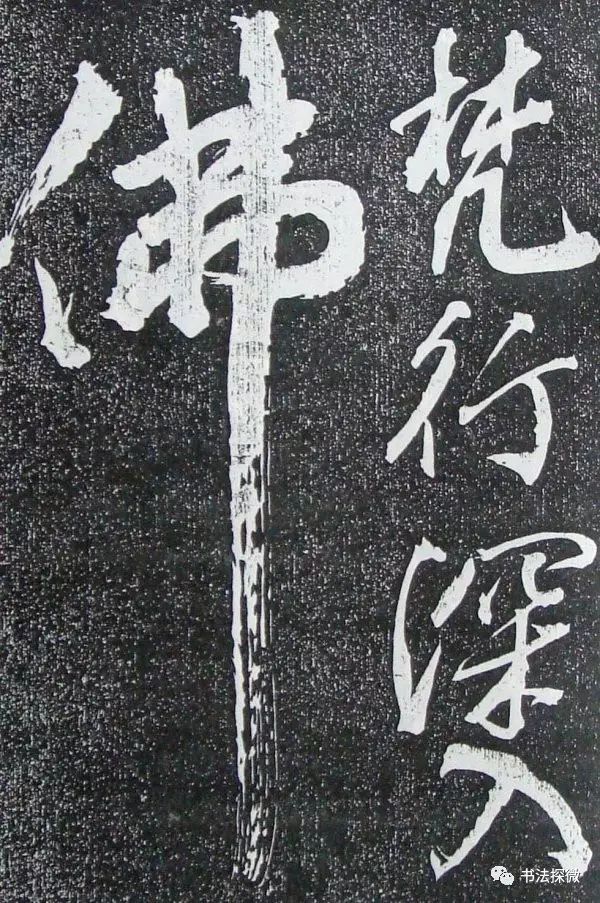 梵行深入
佛
书法探微